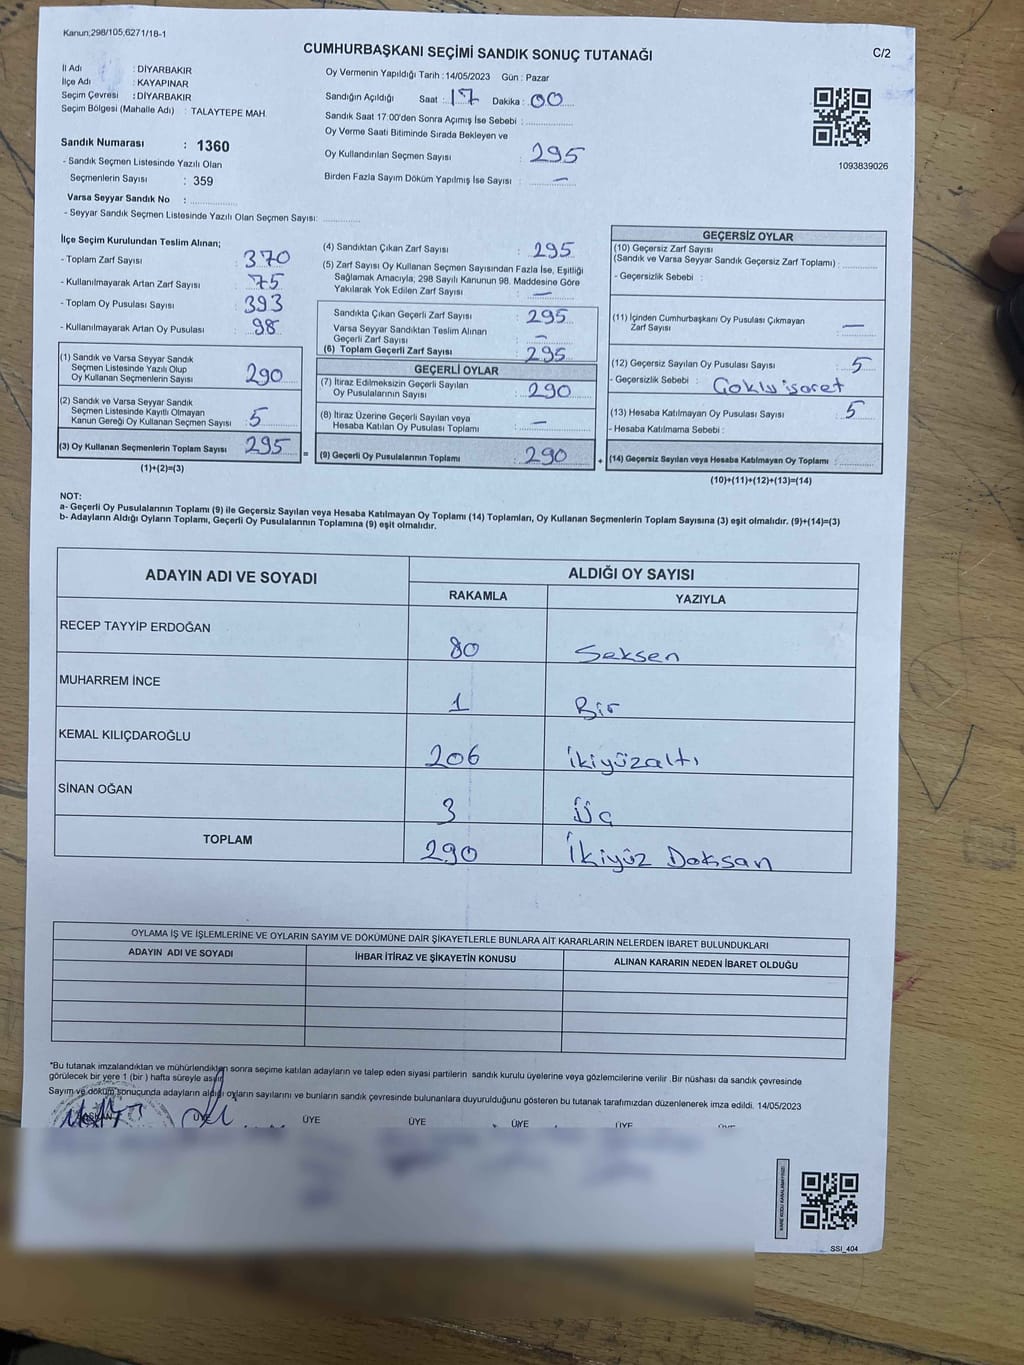 Kanun,298/105,6271/18-1
CUMHURBAŞKANI SEÇİMİ SANDIK SONUÇ TUTANAĞI
C/2
İl Adı : DİYARBAKIR
İlçe Adı : KAYAPINAR
Seçim Çevresi : DİYARBAKIR
Seçim Bölgesi (Mahalle Adı) : TALAYTEPE MAH.
Oy Vermenin Yapıldığı Tarih : 14/05/2023 Gün : Pazar
Sandığın Açıldığı Saat : 17 Dakika : 00
Sandık Saat 17:00'den Sonra Açımış İse Sebebi :
Oy Verme Saati Bitiminde Sırada Bekleyen ve
Oy Kullandırılan Seçmen Sayısı : 295
Birden Fazla Sayım Döküm Yapılmış İse Sayısı : —
1093839026
Sandık Numarası : 1360
- Sandık Seçmen Listesinde Yazılı Olan
Seçmenlerin Sayısı : 359
Varsa Seyyar Sandık No :
- Seyyar Sandık Seçmen Listesinde Yazılı Olan Seçmen Sayısı:
İlçe Seçim Kurulundan Teslim Alınan;
- Toplam Zarf Sayısı : 370
- Kullanılmayarak Artan Zarf Sayısı : 75
- Toplam Oy Pusulası Sayısı : 393
- Kullanılmayarak Artan Oy Pusulası : 98
(1) Sandık ve Varsa Seyyar Sandık
Seçmen Listesinde Yazılı Olup
Oy Kullanan Seçmenlerin Sayısı : 290
(2) Sandık ve Varsa Seyyar Sandık
Seçmen Listesinde Kayıtlı Olmayan
Kanun Gereği Oy Kullanan Seçmen Sayısı : 5
(3) Oy Kullanan Seçmenlerin Toplam Sayısı : 295
(1)+(2)=(3)
(4) Sandıktan Çıkan Zarf Sayısı : 295
(5) Zarf Sayısı Oy Kullanan Seçmen Sayısından Fazla İse, Eşitliği
Sağlamak Amacıyla, 298 Sayılı Kanunun 98. Maddesine Göre
Yakılarak Yok Edilen Zarf Sayısı : —
Sandıkta Çıkan Geçerli Zarf Sayısı : 295
Varsa Seyyar Sandıktan Teslim Alınan
Geçerli Zarf Sayısı : —
(6) Toplam Geçerli Zarf Sayısı : 295
GEÇERLİ OYLAR
(7) İtiraz Edilmeksizin Geçerli Sayılan
Oy Pusulalarının Sayısı : 290
(8) İtiraz Üzerine Geçerli Sayılan veya
Hesaba Katılan Oy Pusulası Toplamı : —
= (9) Geçerli Oy Pusulalarının Toplamı : 290
GEÇERSİZ OYLAR
(10) Geçersiz Zarf Sayısı
(Sandık ve Varsa Seyyar Sandık Geçersiz Zarf Toplamı) :
- Geçersizlik Sebebi :
(11) İçinden Cumhurbaşkanı Oy Pusulası Çıkmayan
Zarf Sayısı : —
(12) Geçersiz Sayılan Oy Pusulası Sayısı : 5
- Geçersizlik Sebebi : Çoklu işaret
(13) Hesaba Katılmayan Oy Pusulası Sayısı : 5
- Hesaba Katılmama Sebebi :
+ (14) Geçersiz Sayılan veya Hesaba Katılmayan Oy Toplamı :
(10)+(11)+(12)+(13)=(14)
NOT:
a- Geçerli Oy Pusulalarının Toplamı (9) ile Geçersiz Sayılan veya Hesaba Katılmayan Oy Toplamı (14) Toplamları, Oy Kullanan Seçmenlerin Toplam Sayısına (3) eşit olmalıdır. (9)+(14)=(3)
b- Adayların Aldığı Oyların Toplamı, Geçerli Oy Pusulalarının Toplamına (9) eşit olmalıdır.
ADAYIN ADI VE SOYADI
ALDIĞI OY SAYISI
RAKAMLA YAZIYLA
RECEP TAYYİP ERDOĞAN 80 Seksen
MUHARREM İNCE 1 Bir
KEMAL KILIÇDAROĞLU 206 ikiyüzaltı
SİNAN OĞAN 3 Üç
TOPLAM 290 İkiyüz Doksan
OYLAMA İŞ VE İŞLEMLERİNE VE OYLARIN SAYIM VE DÖKÜMÜNE DAİR ŞİKAYETLERLE BUNLARA AİT KARARLARIN NELERDEN İBARET BULUNDUKLARI
ADAYIN ADI VE SOYADI İHBAR İTİRAZ VE ŞİKAYETİN KONUSU ALINAN KARARIN NEDEN İBARET OLDUĞU
*Bu tutanak imzalandıktan ve mühürlendikten sonra seçime katılan adayların ve talep eden siyasi partilerin sandık kurulu üyelerine veya gözlemcilerine verilir .Bir nüshası da sandık çevresinde
görülecek bir yere 1 (bir ) hafta süreyle asılır.
Sayım ve döküm sonucunda adayların aldığı oyların sayılarını ve bunların sandık çevresinde bulunanlara duyurulduğunu gösteren bu tutanak tarafımızdan düzenlenerek imza edildi. 14/05/2023
BAŞKAN ÜYE ÜYE ÜYE ÜYE ÜYE
SSI_404